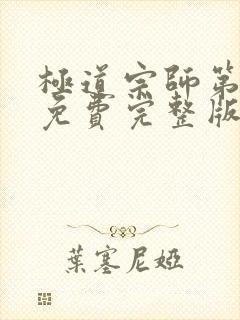 極道宗師第
免費完整版
葉塞尼婭